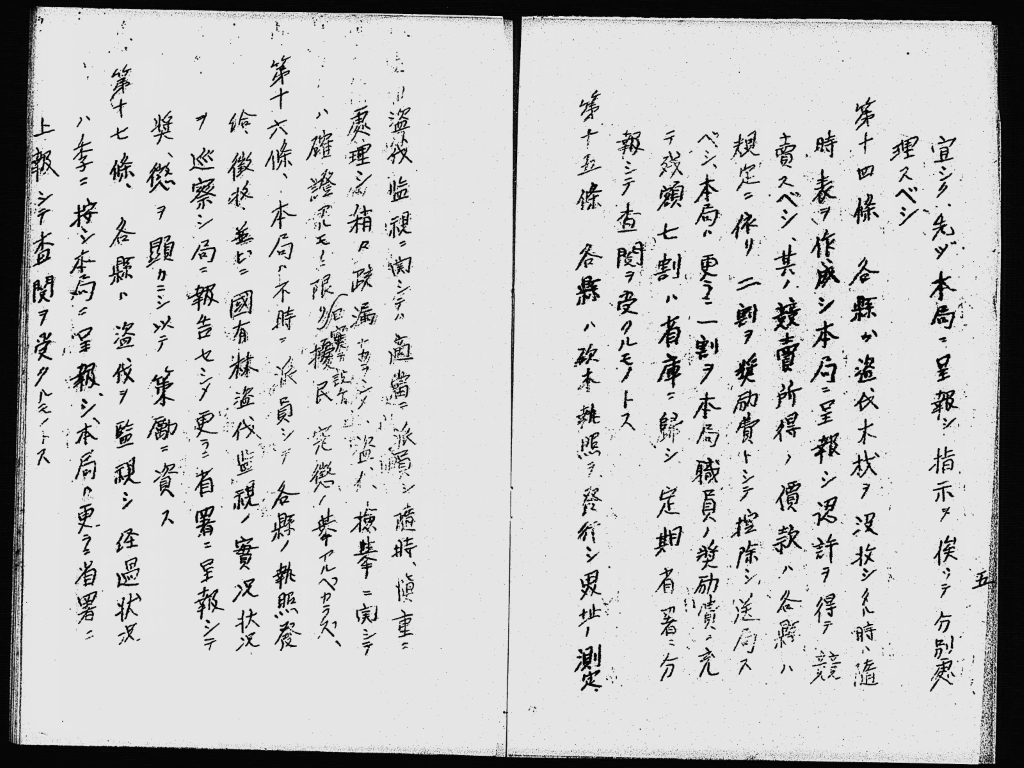 宜シク、先ヅ本局ニ呈報シ指示ヲ俟ッテ分別處
理スベシ
第十四條 各縣ガ盜伐木材ヲ沒收シタル時ハ隨
時表ヲ作成シ本局ニ呈報シ認許ヲ得テ競
賣スベシ、其ノ競賣所得ノ價款ハ各縣ハ
規定ニ依リ二割ヲ奬励費トシテ控除シ送局ス
ベシ、本局ハ更ニ一割ヲ本局職員ノ奬励費ニ充
テ残額七割ハ省庫ニ歸シ定期省署ニ分
報シテ査閱ヲ受クルモノトス
第十五條 各縣ハ砍木執照ヲ發行シ界址ノ測定
五
盜伐監視ニ関シテハ適當ニ派員シ隨時、愼重ニ
處理シ稍々疎漏ナカラシメ盜伐檢擧ニ関シテ
ハ確證アルモノニ限リ擾民
第十六條、本局ハ不時ニ派員シテ各縣ノ執照發
給、徵收、並ビニ國有林盜伐監視ノ實況狀況
ヲ巡察シ局ニ報告セシメ更ニ省署ニ呈報シテ
奬、懲ヲ顯カニシ以テ策勵ニ資ス
第十七條、各縣ハ盜伐ヲ監視シ経過狀況
ハ季ニ按シ本局ニ呈報シ、本局ハ更ニ省署ニ
上報シテ査閱ヲ受クルモノトス